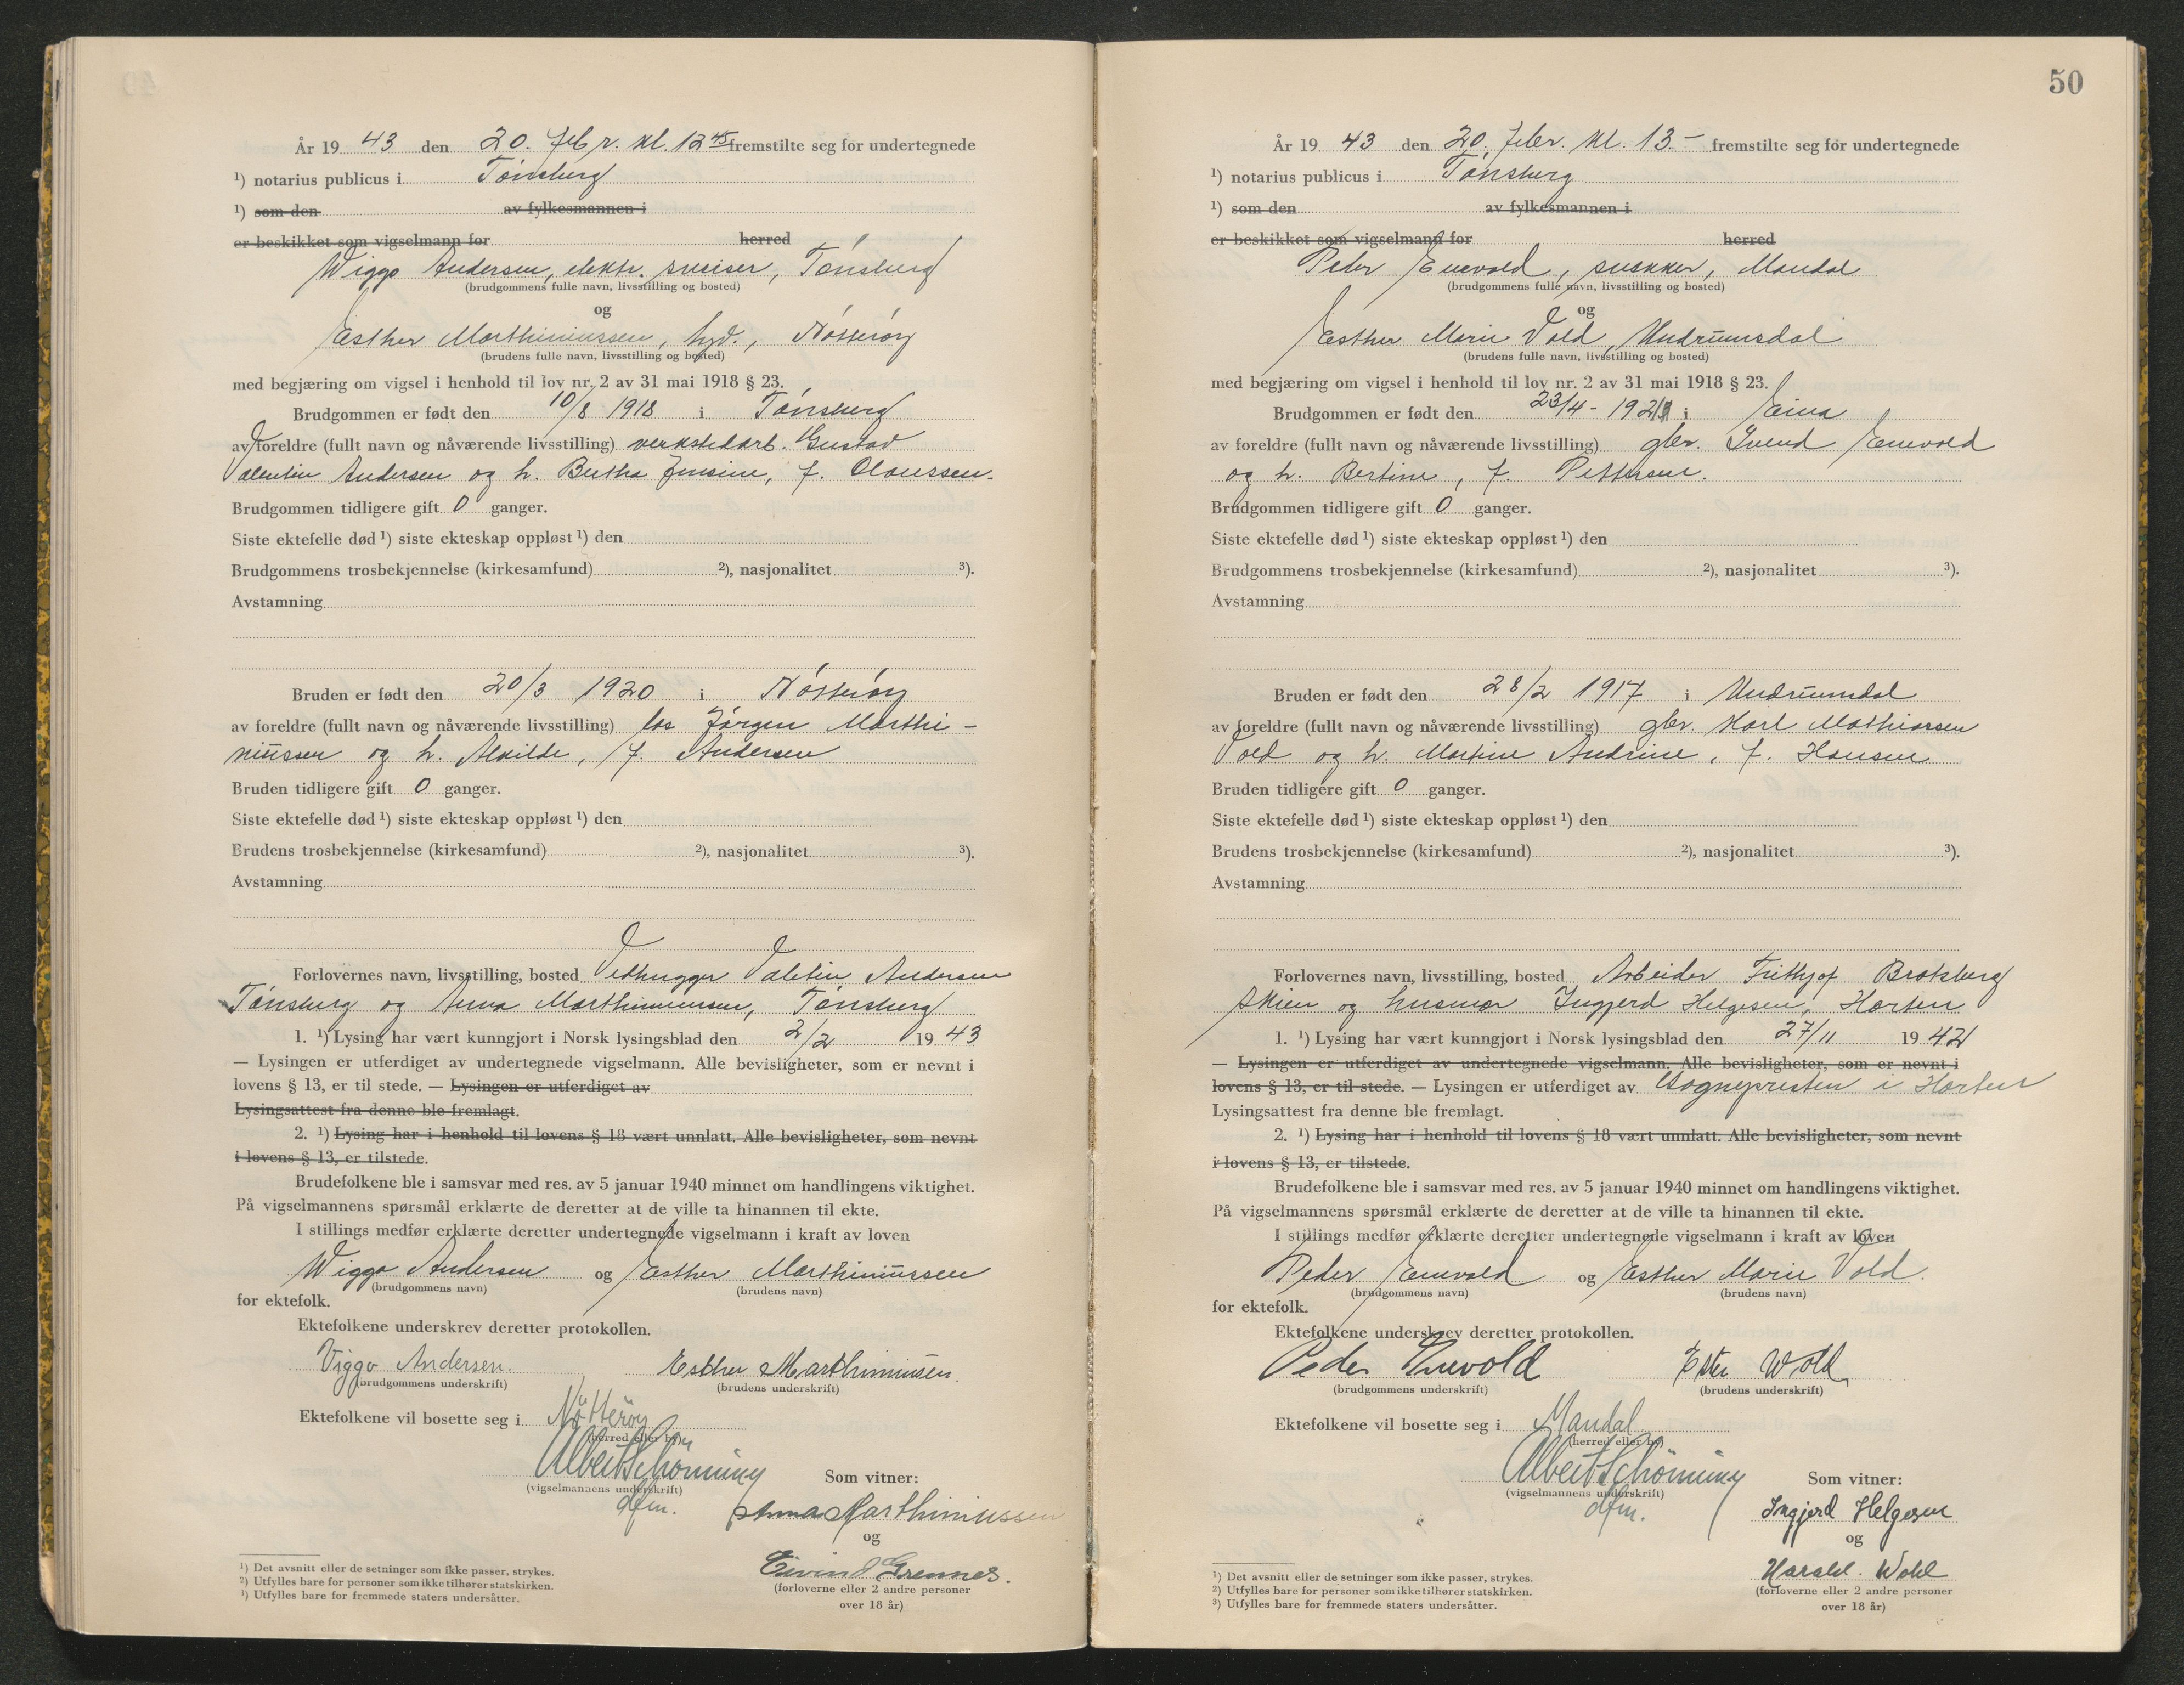 År 19 43 den 20. febr. kl. 12 45 fremstilte seg for undertegnede
¹) notarius publicus i Tønsberg
¹) som den av fylkesmannen i
er beskikket som vigselmann for herred
Wiggo Andersen, elektr. sveiser, Tønsberg
(brudgommens fulle navn, livsstilling og bosted)
og
Esther Marthiniussen, hyd., Nøtterøy
(brudens fulle navn, livsstilling og bosted)
med begjæring om vigsel i henhold til lov nr. 2 av 31 mai 1918 § 23.
Brudgommen er født den 10/8 1918 i Tønsberg
av foreldre (fullt navn og nåværende livsstilling) verkstedarb. Gustav
Valentin Andersen og h. Bertha Jensine, f. Claussen.
Brudgommen tidligere gift 0 ganger.
Siste ektefelle død ¹) siste ekteskap oppløst ¹) den
Brudgommens trosbekjennelse (kirkesamfund) ²), nasjonalitet ³).
Avstamning
Bruden er født den 20/3 1920 i Nøtterøy
av foreldre (fullt navn og nåværende livsstilling) los Jørgen Marthi-
niussen og h. Alvilde, f. Andersen
Bruden tidligere gift 0 ganger.
Siste ektefelle død ¹) siste ekteskap oppløst ¹) den
Brudens trosbekjennelse (kirkesamfund) ²), nasjonalitet ³).
Avstamning
Forlovernes navn, livsstilling, bosted Vedhugger Valetin Andersen
Tønsberg og Anna Marthiniussen, Tønsberg
1. ¹) Lysing har vært kunngjort i Norsk lysingsblad den 2/2 19 43
— Lysingen er utferdiget av undertegnede vigselmann. Alle bevisligheter, som er nevnt i
lovens § 13, er til stede. — Lysingen er utferdiget av
Lysingsattest fra denne ble fremlagt.
2. ¹) Lysing har i henhold til lovens § 18 vært unnlatt. Alle bevisligheter, som nevnt
i lovens § 13, er tilstede.
Brudefolkene ble i samsvar med res. av 5 januar 1940 minnet om handlingens viktighet.
På vigselmannens spørsmål erklærte de deretter at de ville ta hinannen til ekte.
I stillings medfør erklærte deretter undertegnede vigselmann i kraft av loven
Wiggo Andersen og Esther Marthiniussen
(brudgommens navn) (brudens navn)
for ektefolk.
Ektefolkene underskrev deretter protokollen.
Viggo Andersen. Esther Marthiniussen.
(brudgommens underskrift) (brudens underskrift)
Ektefolkene vil bosette seg i Nøtterøy
(herred eller by)
Albert Schønning
(vigselmannens underskrift) Som vitner:
dfm.
Anna Marthiniussen
og
Eivind Grennes.
(forloverne eller 2 andre personer
over 18 år)
¹) Det avsnitt eller de setninger som ikke passer, strykes.
²) Utfylles bare for personer som ikke tilhører statskirken.
³) Utfylles bare for fremmede staters undersåtter.
50
År 19 43 den 20. febr. kl. 13.– fremstilte seg for undertegnede
¹) notarius publicus i Tønsberg
¹) som den av fylkesmannen i
er beskikket som vigselmann for herred
Peder Enevold, snekker, Mandal
(brudgommens fulle navn, livsstilling og bosted)
og
Esther Marie Vold, Undrumsdal
(brudens fulle navn, livsstilling og bosted)
med begjæring om vigsel i henhold til lov nr. 2 av 31 mai 1918 § 23.
Brudgommen er født den 23/4 - i Eina
av foreldre (fullt navn og nåværende livsstilling) gbr. Svend Enevold
og h. Bertine, f. Pettersen.
Brudgommen tidligere gift 0 ganger.
Siste ektefelle død ¹) siste ekteskap oppløst ¹) den
Brudgommens trosbekjennelse (kirkesamfund) ²), nasjonalitet ³).
Avstamning
Bruden er født den 28/2 1917 i Undrumsdal
av foreldre (fullt navn og nåværende livsstilling) gbr. Karl Mathiassen
Vold og h. Martine Andrine, f. Hansen
Bruden tidligere gift 0 ganger.
Siste ektefelle død ¹) siste ekteskap oppløst ¹) den
Brudens trosbekjennelse (kirkesamfund) ²), nasjonalitet ³).
Avstamning
Forlovernes navn, livsstilling, bosted Arbeider Frithjof Bratsberg
Skien og husmor Ingjerd Helgesen, Horten
1. ¹) Lysing har vært kunngjort i Norsk lysingsblad den 27/11 19 42
— Lysingen er utferdiget av undertegnede vigselmann. Alle bevisligheter, som er nevnt i
lovens § 13, er til stede. — Lysingen er utferdiget av Sognepresten i Horten
Lysingsattest fra denne ble fremlagt.
2. ¹) Lysing har i henhold til lovens § 18 vært unnlatt. Alle bevisligheter, som nevnt
i lovens § 13, er tilstede.
Brudefolkene ble i samsvar med res. av 5 januar 1940 minnet om handlingens viktighet.
På vigselmannens spørsmål erklærte de deretter at de ville ta hinannen til ekte.
I stillings medfør erklærte deretter undertegnede vigselmann i kraft av loven
Peder Enevold og Esther Marie Vold.
(brudgommens navn) (brudens navn)
for ektefolk.
Ektefolkene underskrev deretter protokollen.
Peder Enevold Ester Wold
(brudgommens underskrift) (brudens underskrift)
Ektefolkene vil bosette seg i Mandal
(herred eller by)
Albert Schønning
(vigselmannens underskrift) Som vitner:
dfm.
Ingjerd Helgesen
og
Harald. Wold
(forloverne eller 2 andre personer
over 18 år)
¹) Det avsnitt eller de setninger som ikke passer, strykes.
²) Utfylles bare for personer som ikke tilhører statskirken.
³) Utfylles bare for fremmede staters undersåtter.